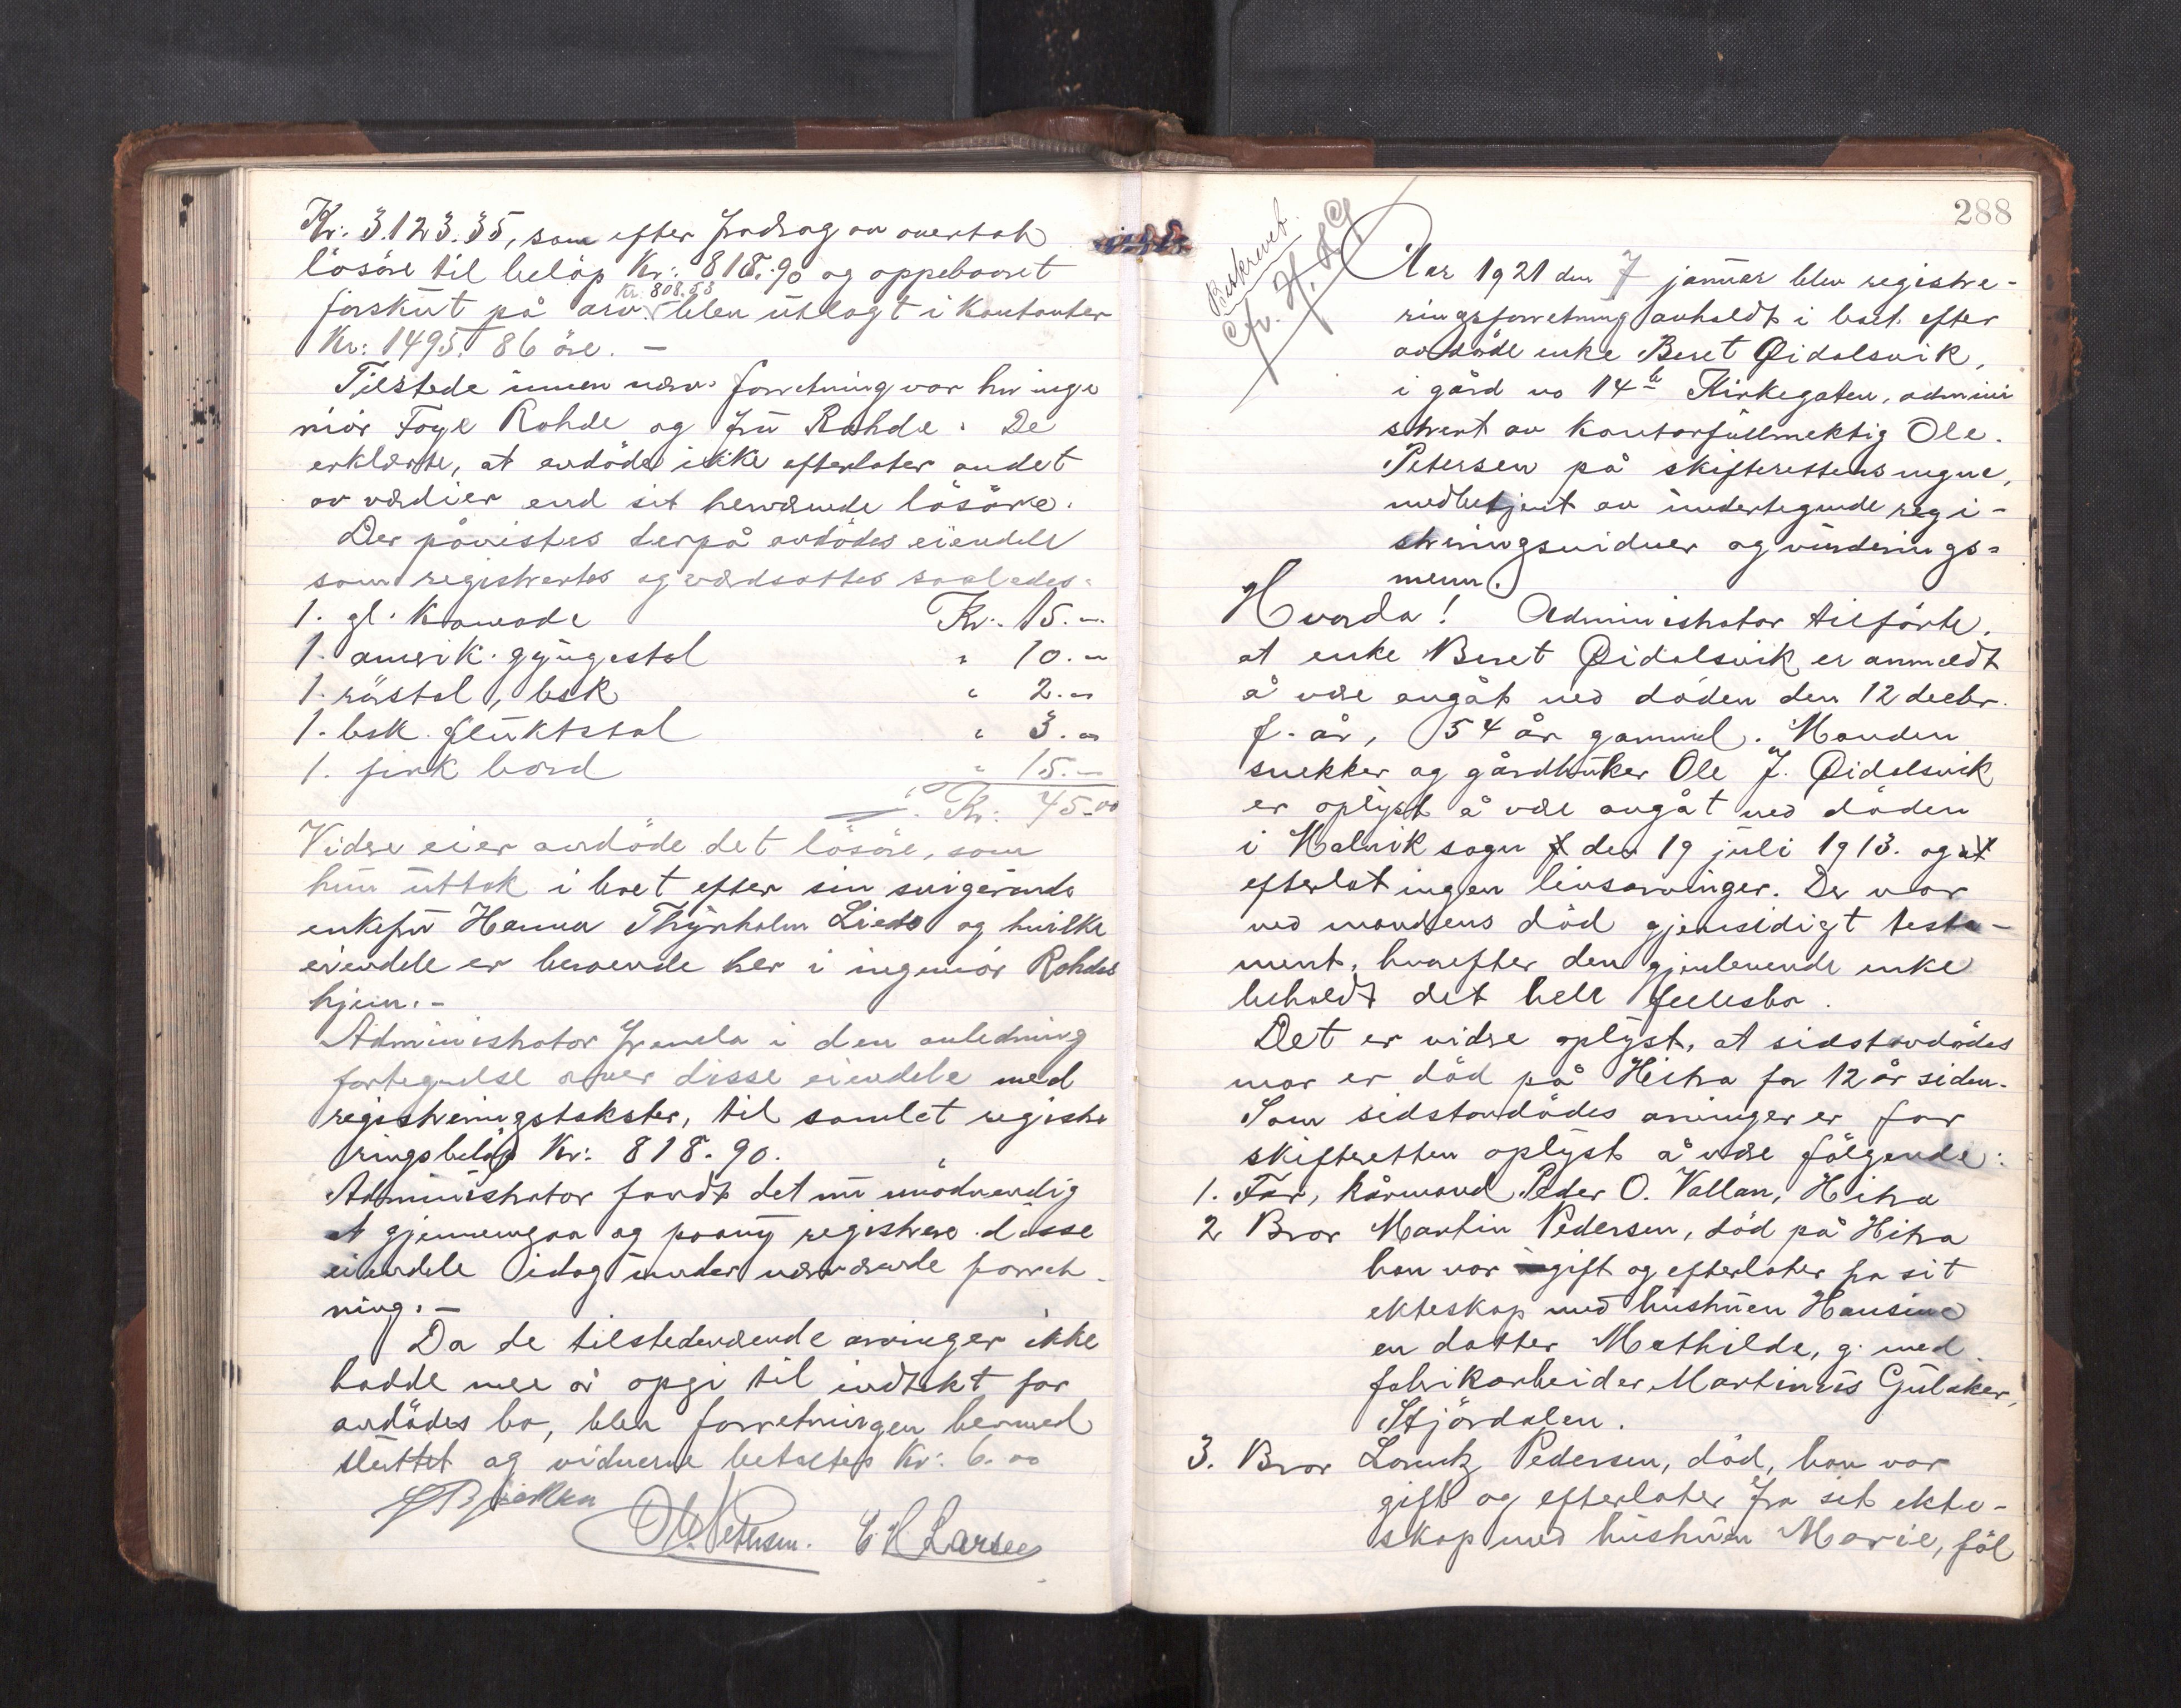 Kr. 3.123.35, som efter fradrag av overtat
lösöre til belöp Kr: 818.90 og oppebaaret
Kr. 808.53
forskut på arv blev utlagt i kontanter
Kr: 1495. 86 öre. —
Tilstede under nærv. forretning var hr inge
niör Foye Rohde og fru Rohde. De
erklærte, at avdöde ikke efterlater andet
av værdier end sit herværende lösöre.
Der påvistes derpå avdödes eiendele
som registrertes og værdsattes saaledes:
1. gl. Komode Kr: 15.–
1. amerik. gyngestol " 10.–
1. röstol, besk " 2.–
1. besk. fluktstol " 3.–
1. firk bord " 15.–
Kr: 45.00
Videre eier avdöde det lösöre, som
hun uttok i boet efter sin svigerinde
enkefru Hanna Thyrholm Liedo og hvilke
eiendele er beroende her i ingeniör Rohdes
hjem. –
Administrator fremla i den anledning
fortegnelse over disse eiendele med
registreringstakster, til samlet registre
ringsbelöp Kr: 818.90.
Administrator fandt det nu unödvendig
at gjennemgaa og paany registrere disse
eiendele idag under nærværende forret-
ning. –
Da de tilstedeværende arvinger ikke
hadde mere å opgi til indtekt for
avdödes bo, blev forretningen hermed
sluttet og vidnerne betaltes Kr: 6.00
Ole Petersen. C H Larsen
288
Beskrevet.
Aar 1921 den 7 januar blev registre-
ringsforretning avholdt i boet efter
avdöde enke Beret Öidalsvik,
i gård no 14b Kirkegaten, admini
strert av kontorfullmektig Ole
Petersen på skifterettens vegne,
medbetjent av undertegnede regi-
streringsvidner og vurderings-
menn.
Hvorda! Administrator tilförte,
at enke Beret Öidalsvik er anmeldt
å være avgåt ved döden den 12 decbr.
f. år, 54 år gammel. Manden
snekker og gårdbruker Ole J. Öidalsvik
er oplyst å være avgåt ved döden
i Malvik sogn den 19 juli 1913. og at
efterlot ingen livsarvinger. Der var
ved mandens död gjensidigt testa-
ment, hvorefter den gjenlevende enke
beholdt det hele fellesbo.
Det er videre oplyst, at sidstavdödes
mor er död på Hitra for 12 år siden.
Som sidstavdödes arvinger er for
skifteretten oplyst å være fölgende:
1. Far, kårmand Peder O. Vallan, Hitra
2 Bror Martin Pedersen, död på Hitra
han var gift og efterlater fra sit
ekteskap med hustruen Hansine
en datter Mathilde, g. med
fabrikarbeider Martinus Gulaker,
Stjördalen.
3. Bror Lorentz Pedersen, död, han var
gift og efterlater fra sit ekte-
skap med hustruen Marie, föl